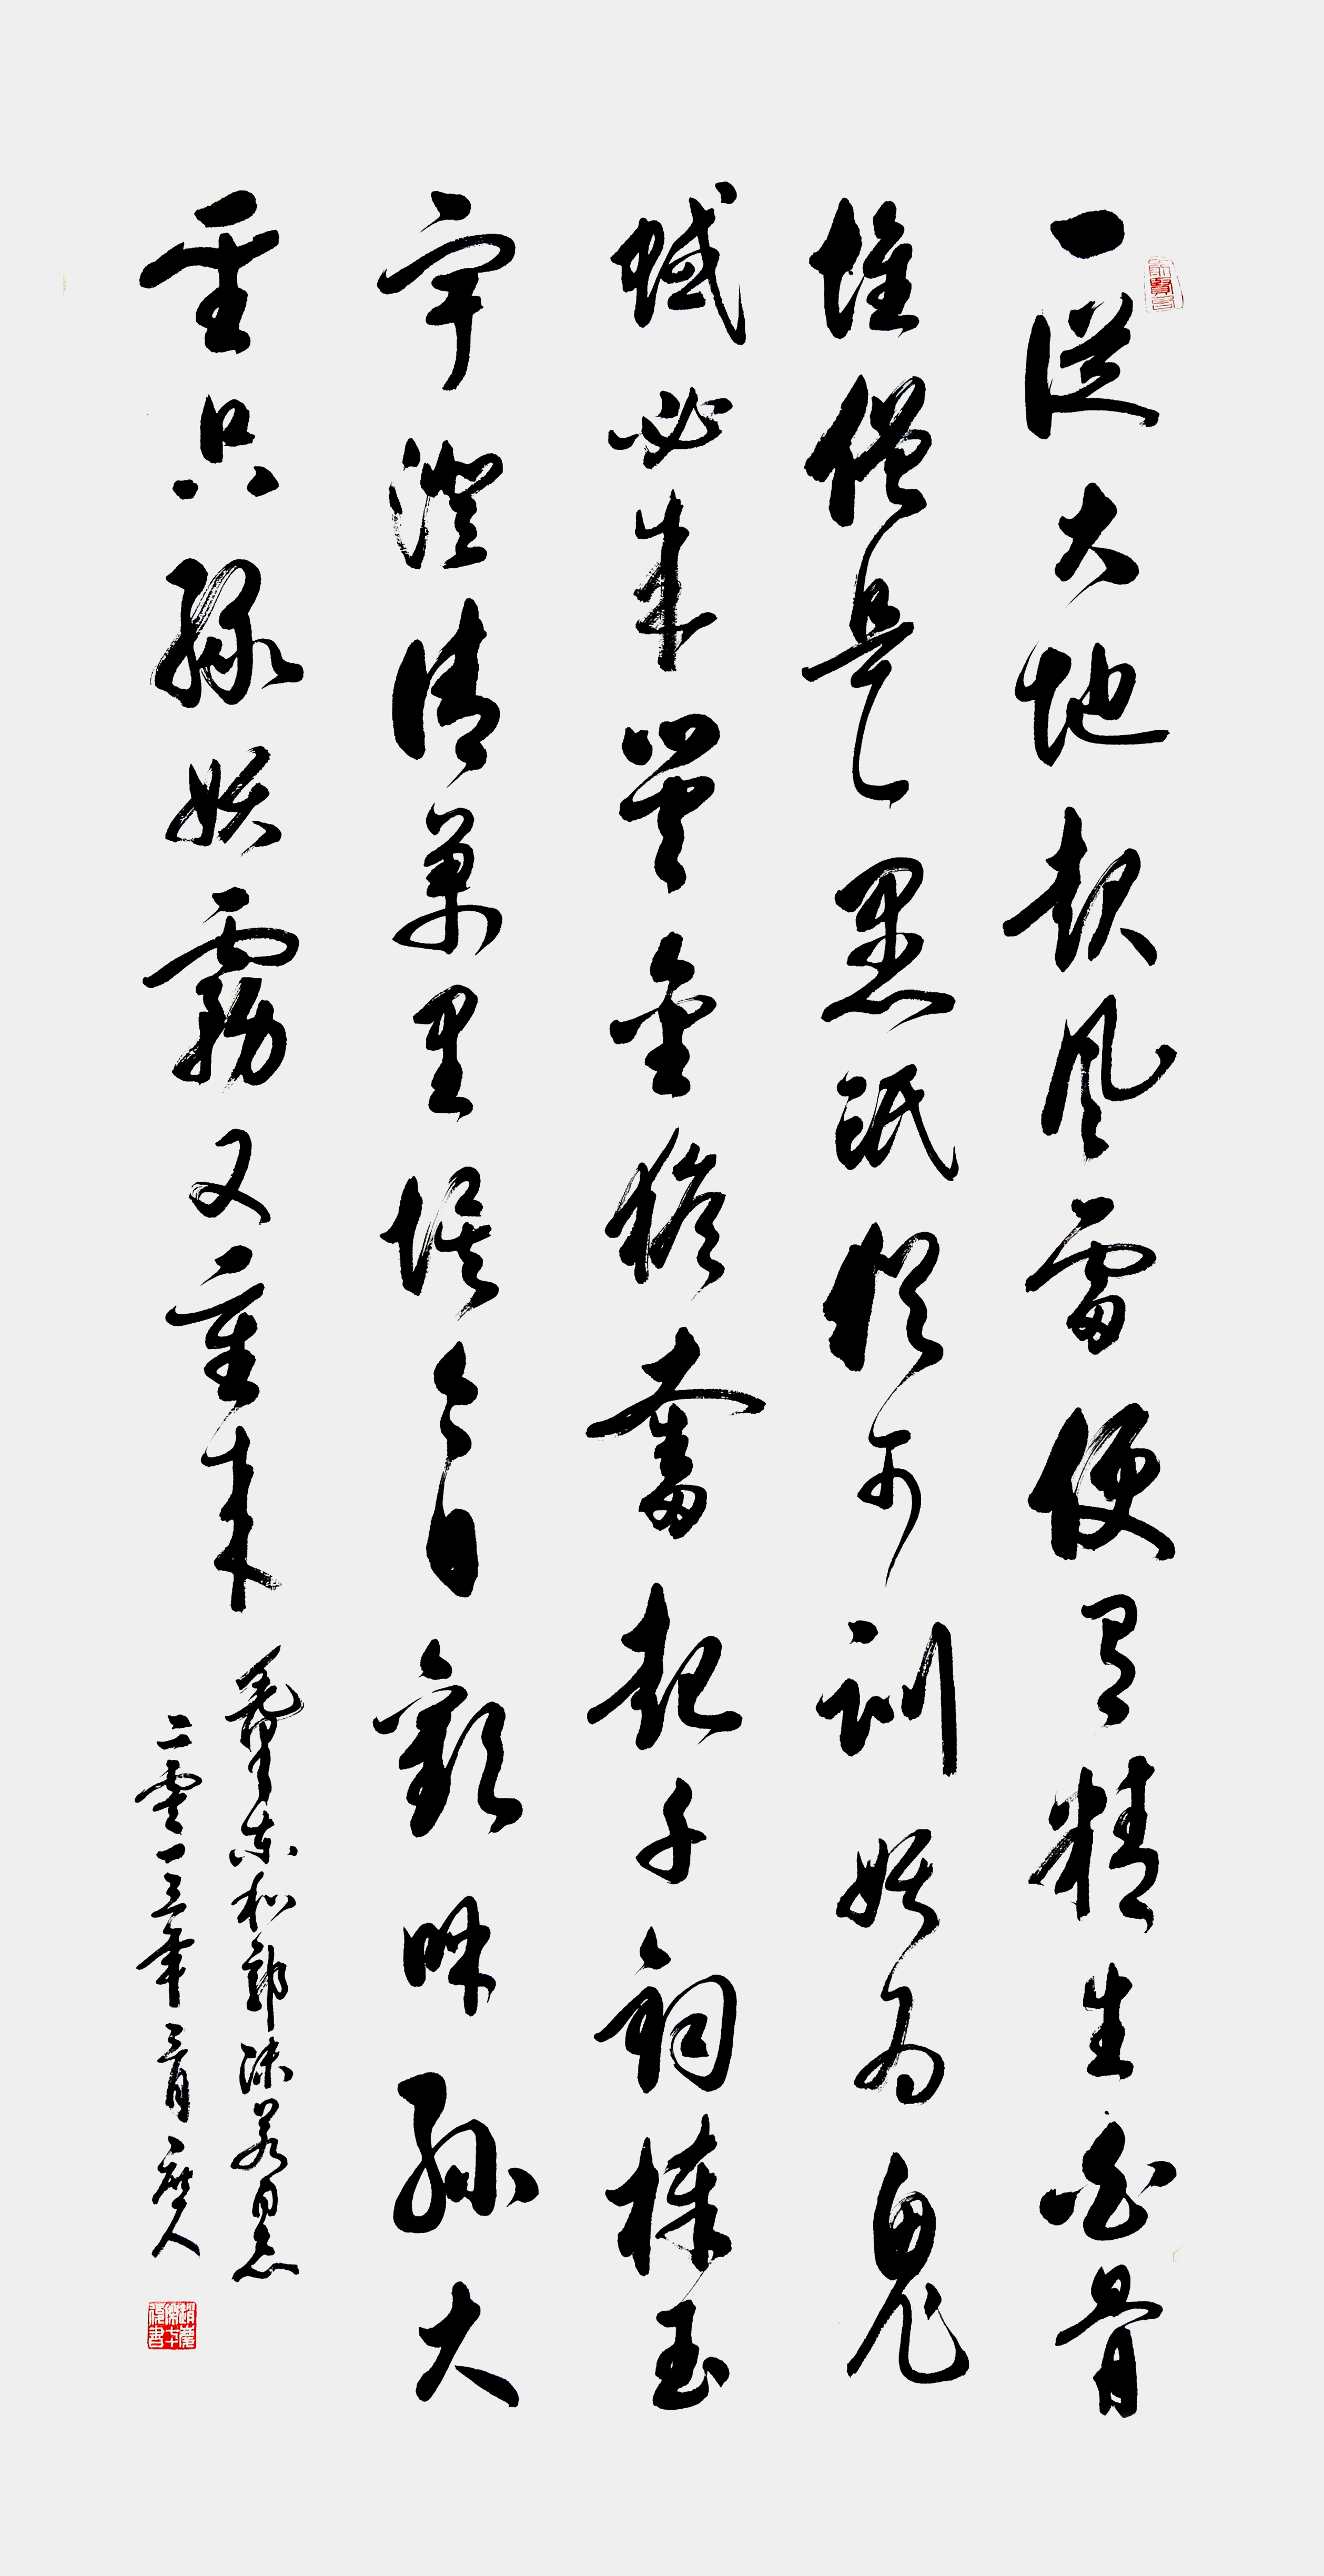 一從大地起風雷便有精生白骨
堆僧是愚氓猶可訓妖為鬼
蜮必成災金猴奮起千鈞棒玉
宇澄清萬里埃今日歡呼孫大
聖只緣妖霧又重來
毛澤東和郭沫若同志
二零一三年三月